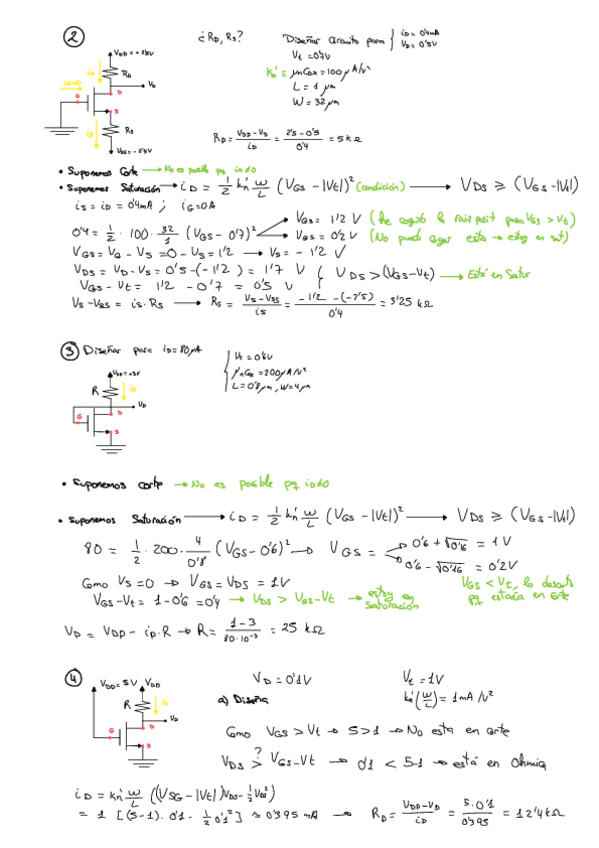 ② ¿RD, RS? Diseñar Circuito para { iD = 0'4mA
VD = 0'5V
VDD = +2'5V
Vt = 0'7V
iD RD
kn' = μnCox = 100 μA/V²
VD
L = 1 μm
G D S
W = 32 μm
iS RS
VSS = -2'5V
RD = (VDD - VD)/iD = (2'5 - 0'5)/0'4 = 5 kΩ
• Suponemos Corte → No es posible pq iD≠0
• Suponemos Saturación → iD = 1/2 kn' W/L (VGS - |Vt|)² (condición) → VDS ≥ (VGS - |Vt|)
iS = iD = 0'4mA ; iG = 0A
0'4 = 1/2 · 100 · 32/1 (VGS - 0'7)² VGS = 1'2 V (He cogido la raiz posit para VGS > Vt)
VGS = 0'2 V (No puedo coger esta → estoy en sat)
VGS = VG - VS = 0 - VS = 1'2 → VS = - 1'2 V
VDS = VD - VS = 0'5 - (-1'2) = 1'7 V { VDS > (VGS - Vt) → Está en Satur
VGS - Vt = 1'2 - 0'7 = 0'5 V
VS - VSS = iS · RS → RS = (VS - VSS)/iS = (-1'2 - (-2'5))/0'4 = 3'25 kΩ
③ Diseñar para iD = 80μA
Vt = 0'6V
VDD = +3V
μnCox = 200μA/V²
R iD
L = 0'8μm, W = 4μm
VD
G D S
• Suponemos corte → No es posible pq iD≠0
• Suponemos Saturación → iD = 1/2 kn' W/L (VGS - |Vt|)² → VDS ≥ (VGS - |Vt|)
80 = 1/2 · 200 · 4/0'8 (VGS - 0'6)² → VGS = 0'6 + √0'16 = 1V
0'6 - √0'16 = 0'2V
Como VS = 0 → VGS = VDS = 1V
VGS < Vt, lo descarto
pq estaría en corte
VGS - Vt = 1 - 0'6 = 0'4 → VDS > VGS - Vt → estoy en saturación
VD = VDD - iD · R → R = (1 - 3)/(80 · 10⁻³) = 25 kΩ
④ VDD = 5V VDD
VD = 0'1V Vt = 1V
R iD
a) Diseña kn' (W/L) = 1mA/V²
VD
G D S
Como VGS > Vt → 5 > 1 → No esta en corte
VDS >? VGS - Vt → 0'1 < 5-1 → está en Ohmica
iD = kn' W/L ((VSG - |Vt|)VDS - 1/2 VDS²)
= 1 [(5-1) · 0'1 - 1/2 0'1²] ≈ 0'395 mA → RD = (VDD - VD)/iD = (5 - 0'1)/0'395 = 12'4kΩ